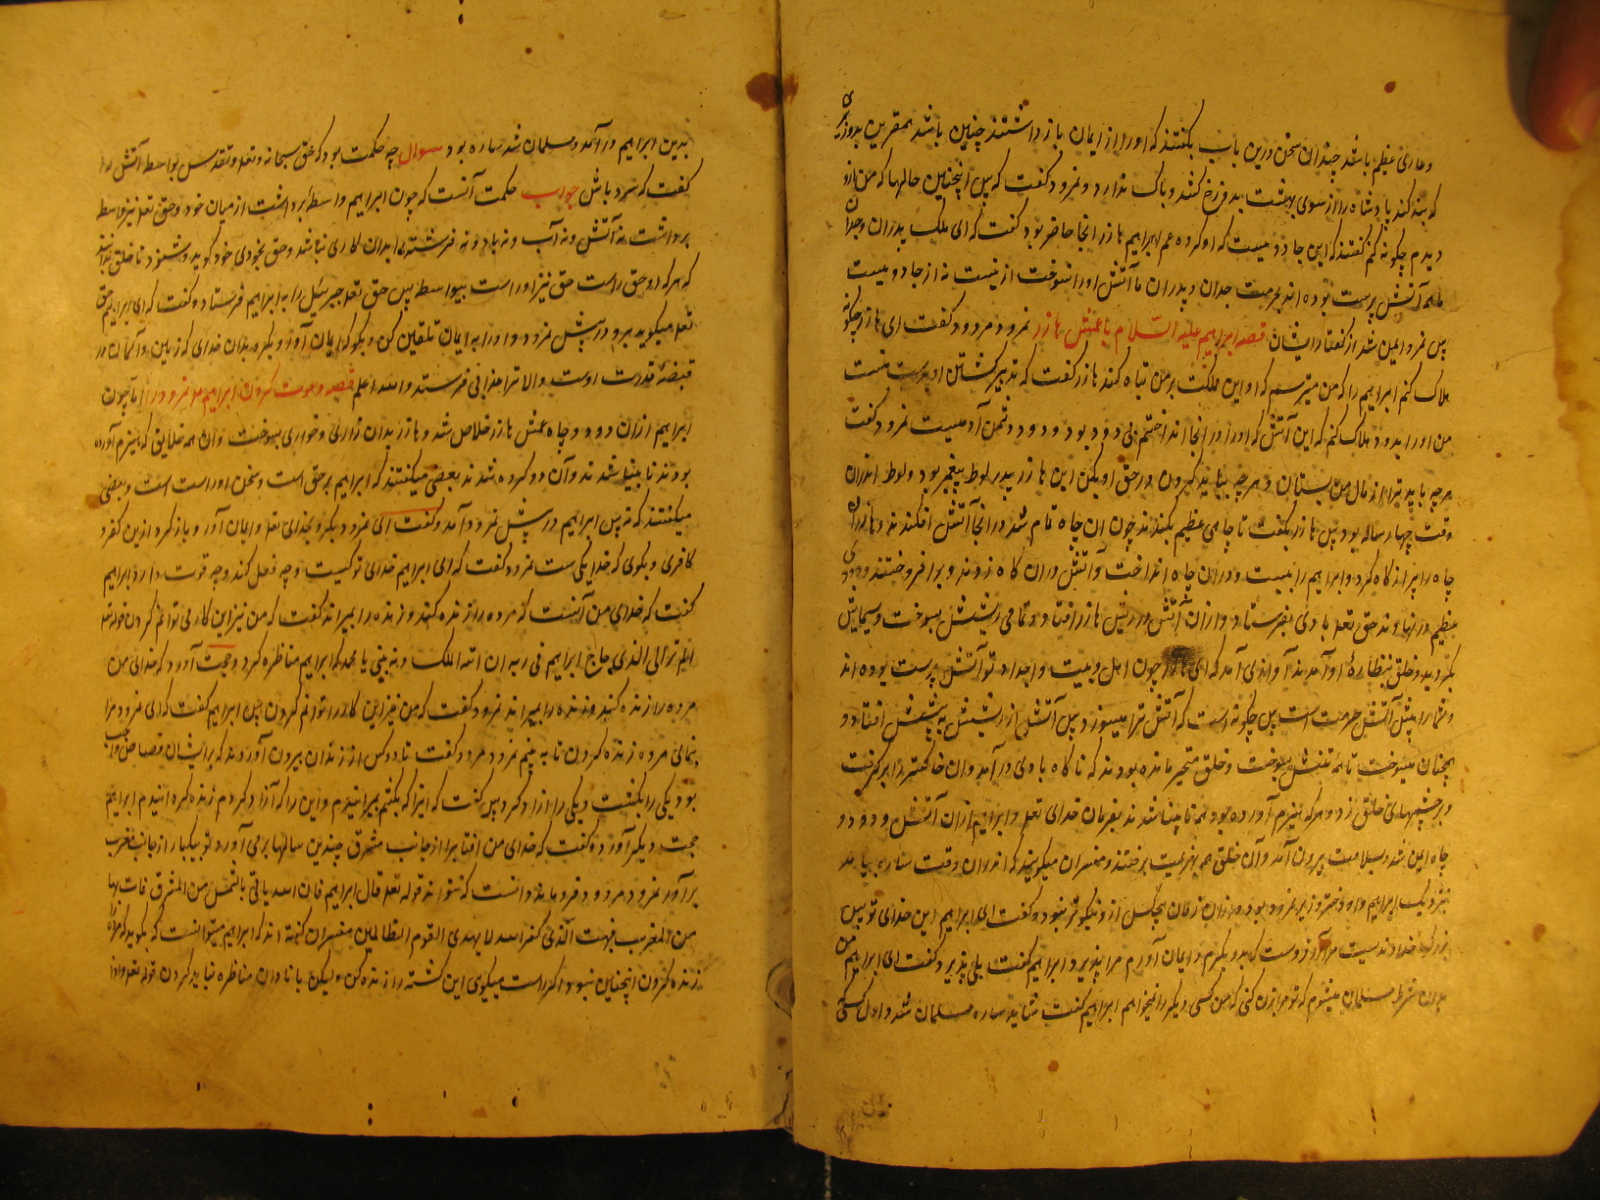 و عاری عظیم باشد چندان سخن درین باب بگفتند که او را از ایمان باز داشتند چنین باشد همقرین بد روزی
که بند کند پادشاه را از سوی بهشت بدوزخ کشد و باک ندارد و نمرود گفت که پس اینچنین حالها که من ازو
دیدم چگونه کنم گفتند که این جادویست که او کرده عم ابراهیم هازر انجا حاضر بود گفت که ای ملک پدران و جدان
ما همه آتش پرست بوده اند بحرمت جدان و پدران ما آتش او را نسوخت ازینست نه از جادویست
پس نمرود ایمن شد از گفتار ایشان قصه ابراهیم علیه السلام با عمش هازر نمرود مردود گفت ای هازر چگونه
هلاک کنم ابراهیم را که من میترسم که او این مملکت بر من تباه کند هازر گفت که تدبیر کشتن او بدست منست
من او را بدود هلاک کنم که این آتش که او را در انجا انداختم بی دود بود و دود دشمن آدمیست نمرود گفت
هر چه باید ترا از مال من بستان و هر چه بباید کردن در حق او بکن این هازر پدر لوط پیغمبر بود و لوط اندران
وقت چهار ساله بود پس هازر بگفت تا چاهی عظیم بکندند چون ان چاه تمام شد در انجا آتش افکندند و هازر ان
چاه را پر از کاه کرد و ابراهیم را ببست و دران چاه انداخت و آتش دران کاه زدند و برافروختند و دودی
عظیم در نهاوند حق تعل بادی بفرستاد و ازان آتش در ریش هازر افتاد و تمامی ریشش بسوخت و سیمایش
بگردید و خلق بنظارۀ او آمدند آوازی آمد که ای هازر چون اهل و بیت و اجداد تو آتش پرست بوده اند
و شما را پیش آتش حرمت است پس چگونه است که آتش ترا میسوزد پس آتش از ریشش به پیشش افتاد و
همچنان میسوخت تا همه تنش بسوخت و خلق متحیر مانده بودند که ناگاه بادی در آمد و ان خاکستر را برگرفت
و بر چشمهای خلق زد و هر که هیزم آورده بود همه نابینا شدند بفرمان خدای تعل و ابراهیم ازان آتش و دود و
چاه ایمن شد و بسلامت بیرون آمد و آن خلق همه بهزیمت برفتند و مفسران میگویند که اندران وقت ساره بیامد
نزدیک ابراهیم و او دختر وزیر نمرود بود دران زمان هیچکس ازو نیکوتر نبود و گفت ای ابراهیم این خدای تو بس
بزرگ خداوندیست مرا آرزوست که بدو بگروم و ایمان آورم مرا پذیرد ابراهیم گفت بلی پذیرد گفت ای ابراهیم من
بدان شرط مسلمان میشوم که تو مرا بزن کنی که من کسی دیگر را نمیخواهم ابراهیم گفت شاید ساره مسلمان شد و اول کسی
بدین ابراهیم در آمد و مسلمان شد ساره بود سوال چه حکمت بود که حق سبحانه و تعل و تقدس بواسطه آتش را
گفت که سرد باش جواب حکمت آنست که چون ابراهیم واسطه برداشت از میان خود و حق تعل نیز واسطه
برداشت نه آتش و نه آب و نه باد و نه فرشته بدان کاری نباشد و حق بخودی خود گوید و شنود تا خلق بدانند
که هر که او حق راست حق نیز او راست بیواسطه پس حق تعل جبرئیل را به ابراهیم فرستاد و گفت که ای ابراهیم حق
تعل میگوید برو در پیش نمرود و او را به ایمان تلقین کن و بگو که ایمان آور و بگرو بدان خدای که زمین و آسمان در
قبضۀ قدرت اوست والا ترا عذابی فرستد والله اعلم قصه دعوت کردن ابراهیم علم نمرود را اما چون
ابراهیم ازان دود و چاه عمش هازر خلاص شد و هازر بدان زاری و خواری بسوخت و ان همه خلایق که هیزم آورده
بودند نابینا شدند و آن دو گروه شدند بعضی میگفتند که ابراهیم بر حق است و سخن او راست است و بعضی
میگفتند که نه پس ابراهیم در پیش نمرود آمد و گفت ای نمرود بگرو بخدای تعل و ایمان آور و باز گرد ازین کفر و
کافری و بگوی که خدا یکی ست نمرود گفت که ای ابراهیم خدای تو کیست و چه فعل کند و چه قوت دارد ابراهیم
گفت که خدای من آنست که مرده را زنده کند و زنده را بمیراند گفت که من نیز این کار می توانم کردن قوله تعل
الم تر الی الذی حاج ابراهیم فی ربه ان اتیه الملک و نه بینی یا محمد که ابراهیم مناظره کرد و حجت آورد که خدای من
مرده را زنده کند و زنده را بمیراند نمرود گفت که من نیز این کار را توانم کردن پس ابراهیم گفت که ای نمرود مرا
بنمای مرده زنده کردن تا به بینم نمرود مردود گفت تا دو کس از زندان بیرون آوردند که بر ایشان قصاص واجب
بود یکی را بکشت و یکی را آزاد کرد پس گفت که اینرا که بکشتم بمیرانیدم و این را که آزاد کردم زنده گردانیدم ابراهیم
حجت دیگر آورده گفت که خدای من افتاب را از جانب مشرق چندین سالها برمی آورد تو یکبار از جانب مغرب
برآور نمرود مردود فرو ماند و دانست که نتواند قوله تعل قال ابراهیم فان الله یاتی بالشمس من المشرق فات بها
من المغرب فبهت الذی کفر والله لا یهدی القوم الظالمین مفسران گفته اند که ابراهیم میتوانست که بگوید که مرده
زنده کردن اینچنین نبود اگر راست میگوی این کشته را زنده کن ولیکن با نادان مناظره نباید کردن قوله تعل و اذا